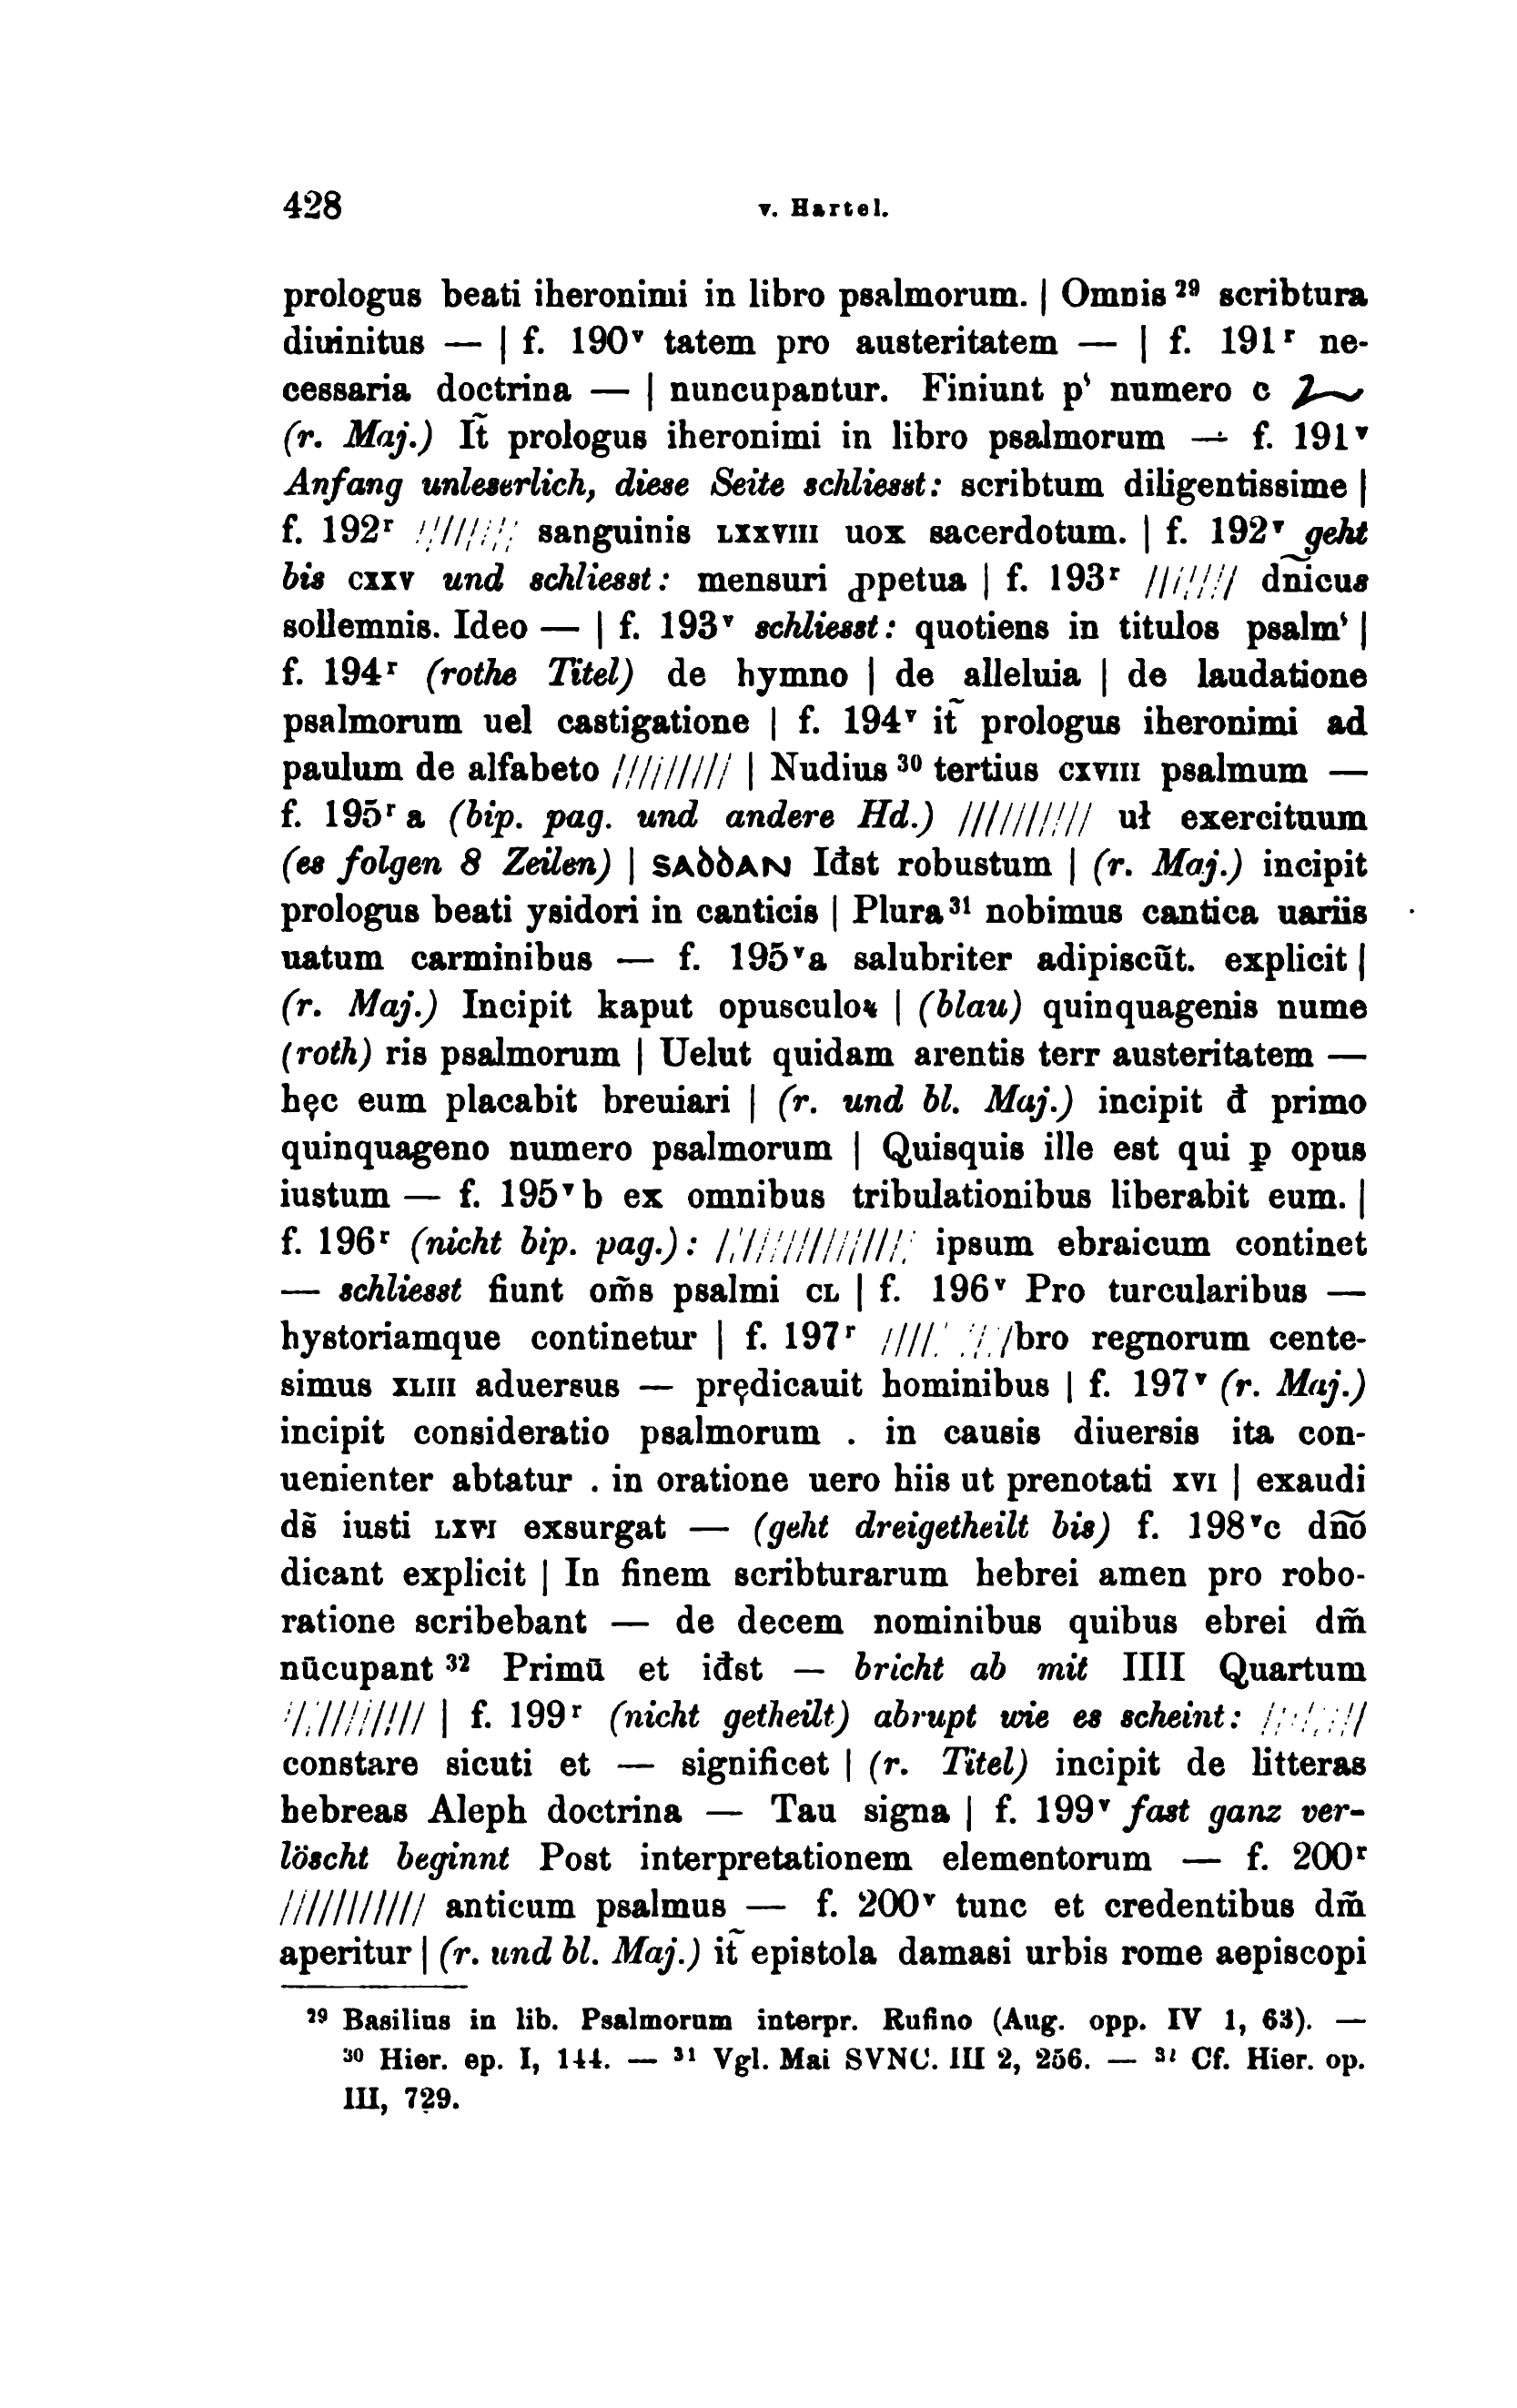 428 v. Hartel.
prologus beati iheronimi in libro psalmorum. | Omnis ²⁹ scribtura
diuinitus — | f. 190ᵛ tatem pro austeritatem — | f. 191ʳ ne-
cessaria doctrina — | nuncupantur. Finiunt pˢ numero c
(r. Maj.) It̃ prologus iheronimi in libro psalmorum — f. 191ᵛ
Anfang unleserlich, diese Seite schliesst: scribtum diligentissime |
f. 192ʳ //////// sanguinis LXXVIII uox sacerdotum. | f. 192ᵛ geht
bis CXXV und schliesst: mensuri ꝓpetua | f. 193ʳ //////// dn̄icus
sollemnis. Ideo — | f. 193ᵛ schliesst: quotiens in titulos psalmˢ |
f. 194ʳ (rothe Titel) de hymno | de alleluia | de laudatione
psalmorum uel castigatione | f. 194ᵛ it̃ prologus iheronimi ad
paulum de alfabeto ////////// | Nudius ³⁰ tertius CXVIII psalmum —
f. 195ʳ a (bip. pag. und andere Hd.) /////////// uł exercituum
(es folgen 8 Zeilen) | SAδδAN Iđst robustum | (r. Maj.) incipit
prologus beati ysidori in canticis | Plura³¹ nobimus cantica uariis
uatum carminibus — f. 195ᵛa salubriter adipiscūt. explicit |
(r. Maj.) Incipit kaput opusculoꝝ | (blau) quinquagenis nume
(roth) ris psalmorum | Uelut quidam arentis terr austeritatem —
hęc eum placabit breuiari | (r. und bl. Maj.) incipit đ primo
quinquageno numero psalmorum | Quisquis ille est qui ꝑ opus
iustum — f. 195ᵛb ex omnibus tribulationibus liberabit eum. |
f. 196ʳ (nicht bip. pag.): //////////////// ipsum ebraicum continet
— schliesst fiunt om̃s psalmi CL | f. 196ᵛ Pro turcularibus —
hystoriamque continetur | f. 197ʳ //// ///bro regnorum cente-
simus XLIII aduersus — prędicauit hominibus | f. 197ᵛ (r. Maj.)
incipit consideratio psalmorum . in causis diuersis ita con-
uenienter abtatur . in oratione uero hiis ut prenotati XVI | exaudi
ds̃ iusti LXVI exsurgat — (geht dreigetheilt bis) f. 198ᵛc dn̄ō
dicant explicit | In finem scribturarum hebrei amen pro robo-
ratione scribebant — de decem nominibus quibus ebrei dm̃
nūcupant ³² Primū et iđst — bricht ab mit IIII Quartum
/////////// | f. 199ʳ (nicht getheilt) abrupt wie es scheint: ////////
constare sicuti et — significet | (r. Titel) incipit de litteras
hebreas Aleph doctrina — Tau signa | f. 199ᵛ fast ganz ver-
löscht beginnt Post interpretationem elementorum — f. 200ʳ
//////////// anticum psalmus — f. 200ᵛ tunc et credentibus dm̃
aperitur | (r. und bl. Maj.) it̃ epistola damasi urbis rome aepiscopi
²⁹ Basilius in lib. Psalmorum interpr. Rufino (Aug. opp. IV 1, 63). —
³⁰ Hier. ep. I, 144. — ³¹ Vgl. Mai SVNC. III 2, 256. — ³² Cf. Hier. op.
III, 729.